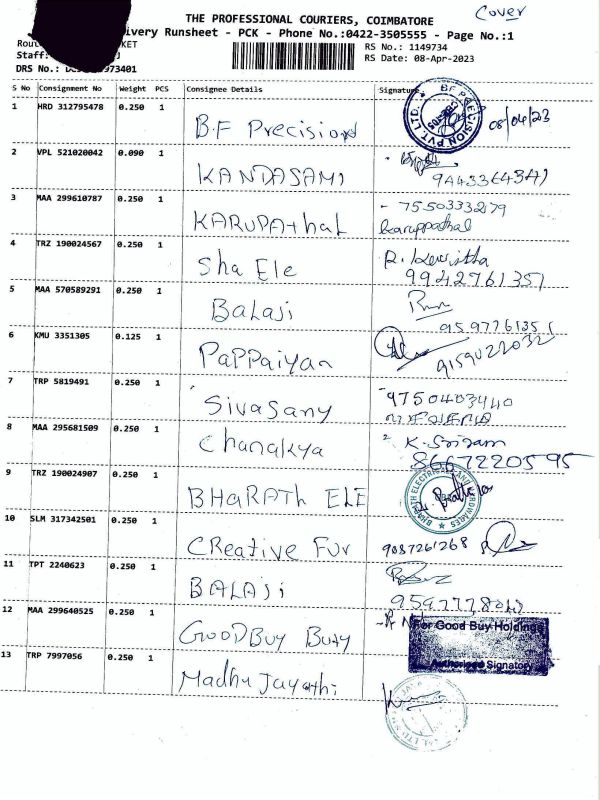 Cover
THE PROFESSIONAL COURIERS, COIMBATORE
ivery Runsheet - PCK - Phone No.:0422-3505555 - Page No.:1
Rout KET RS No.: 1149734
Staff: J RS Date: 08-Apr-2023
DRS No.: 973401
S No Consignment No Weight PCS Consignee Details Signature
1 HRD 312795478 0.250 1 B.F Precision 08/04/23
2 VPL 521020042 0.090 1 KANDASAMI
3 MAA 299610787 0.250 1 KARUPAthal - 7550333279
Karuppathal
4 TRZ 190024567 0.250 1 Sha Ele R. Kavitha
9942761357
5 MAA 570589291 0.250 1 BALAJi
9597761351
6 KMU 3351305 0.125 1 PAPPAiyan 9159022032
7 TRP 5819491 0.250 1 Sivasany 9750403440
8 MAA 295681509 0.250 1 Chanakya K. Sriram
8667220595
9 TRZ 190024907 0.250 1 BHARATh ELE BHARATH ELECTRICAL AND
10 SLM 317342501 0.250 1 CReative FUr 9087261268
11 TPT 2240623 0.250 1 BALAJi
12 MAA 299640525 0.250 1 GOODBUY Buay For Good Buy Holdings
Authorised Signatory
13 TRP 7997056 0.250 1 Madhu Jayathi